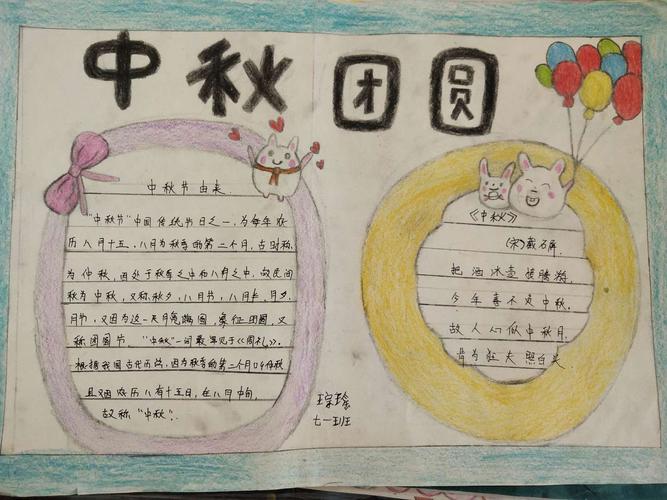 中秋团圆
中秋节由来
"中秋节"中国传统节日之一,为每年农
历八月十五,八月为秋季的第二个月,古时称
为仲秋,因处于秋季之中和八月之中,故民间
称为中秋,又称秋夕,八月节,八月半,月夕,
月节,又因为这一天月亮满圆,象征团圆,又
称团圆节。"中秋"一词最早见于《周礼》。
根据我国古代历法,因为秋季的第二个月叫仲秋
且因农历八月十五日,在八月中旬,
故称"中秋"。
《中秋》
(宋)戴石屏
把酒冰壶接胜游
今年喜不负中秋.
故人心似中秋月.
肯为狂夫照白头
七一班